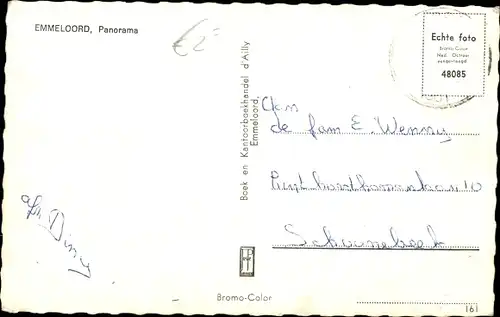 EMMELOORD, Panorama
€ 2
Echte foto
Bromo-Color
Ned. Octrooi
aangevraagd
48085
Boek en Kantoorboekhandel d'Ailly
Emmeloord
Aan
de fam E. Wenny
10
Schoonebeek
afz Diny
Bromo-Color
161